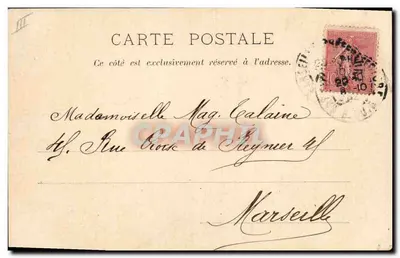 III
CARTE POSTALE
Ce côté est exclusivement réservé à l'adresse.
Mademoiselle Mag. Talaine
45, Rue Croix de Reynier 45
Marseille